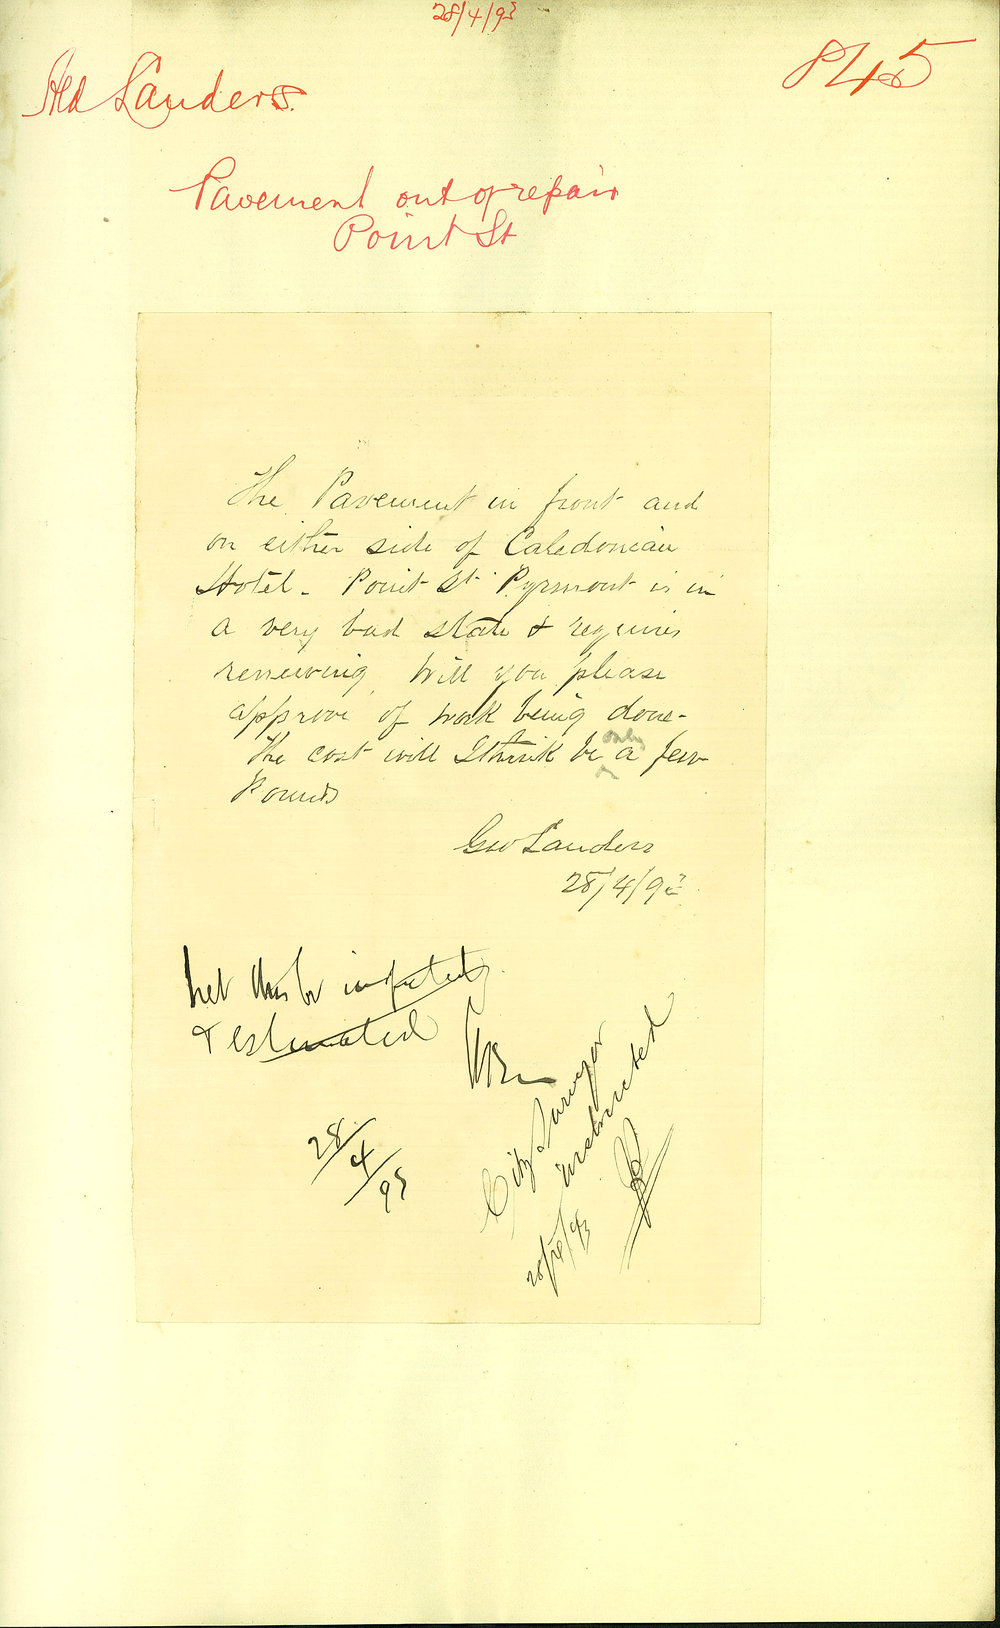 28/4/93
845
Ald Landers.
Pavement out of repair
Point St
The Pavement in front and
on either side of Caledonian
Hotel - Point St Pyrmont is in
a very bad state & requires
renewing. Will you please
approve of work being done -
The cost will I think be only a few
Pounds
Geo Landers
28/4/93
Let this be inspected
& estimated
28/4/93
City Surveyor
instructed
28/4/93